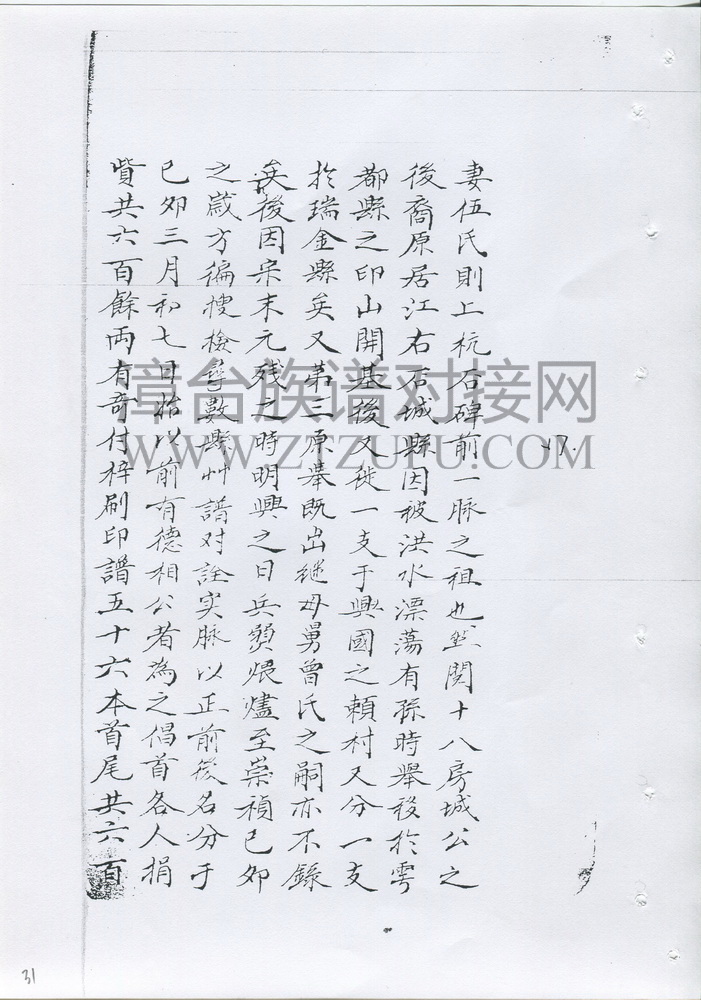 妻伍氏則上杭石碑前一脉之祖也然関十八房城公之
後裔原居江右石城縣因被洪水漂蕩有孫時舉移於雩
都縣之印山開基後又徙一支于興國之頼村又分一支
於瑞金縣矣又第三原舉既出継母舅曾氏之嗣亦不錄
矣後因宋末元残之時明興之日兵燹煨燼至崇禎己夘
之歲方徧搜檢尋數縣艸譜对詮实脉以正前後名分于
己夘三月初七日始以前有德相公者為之倡首各人捐
貲共六百餘両有奇付梓刷印譜五十六本首尾共六百
17.
章台族谱对接网
WWW.ZTZUPU.COM
31